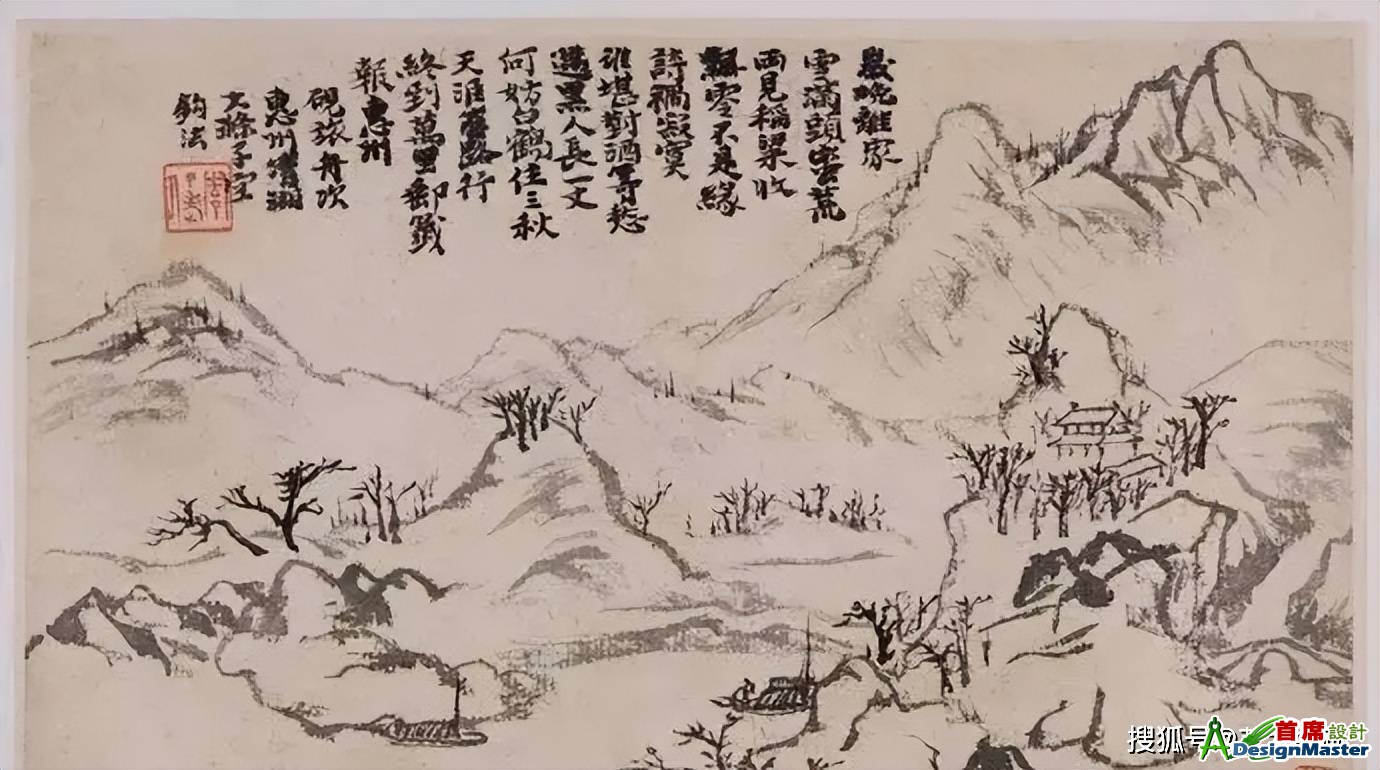 歲晚離家
雪滿頭蠻荒
兩見稻粱收
飄零不是緣
詩禍寂寞
誰堪對酒愁
黑人長一丈
何妨白鶴住三秋
天涯路行
終到萬里籤
報惠州
硯旅舟次
惠州
大滌子
搜狐号@
首席設計
DesignMaster